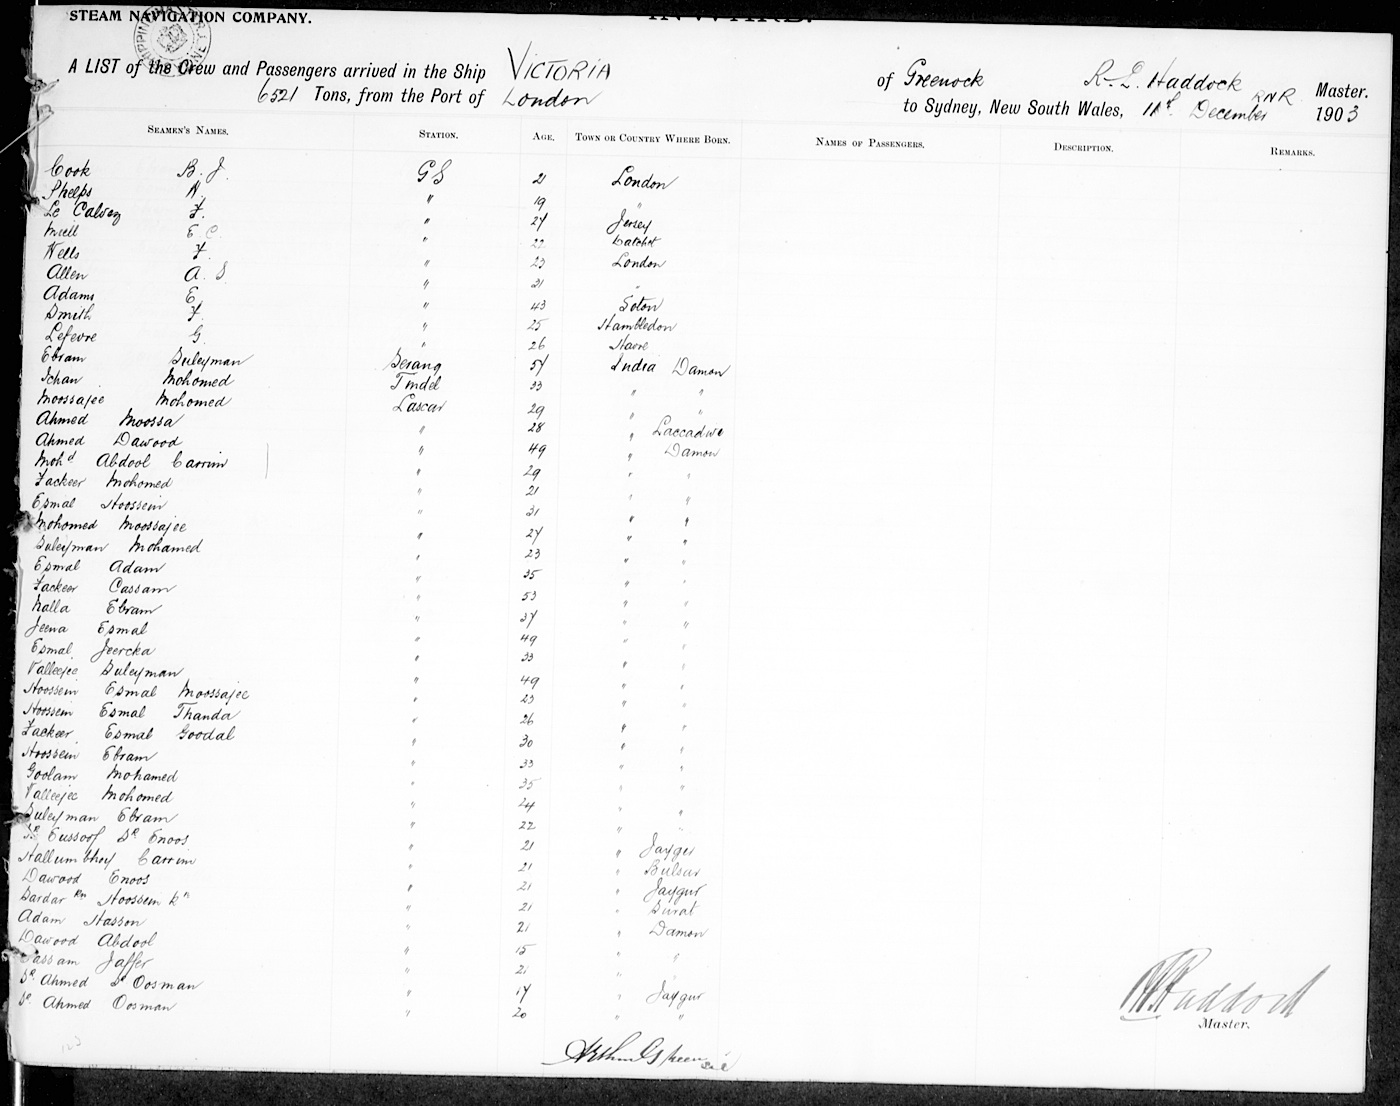 STEAM NAVIGATION COMPANY.
INWARD.
A LIST of the Crew and Passengers arrived in the Ship VICTORIA of Greenock R. L. Haddock RNR Master.
6521 Tons, from the Port of London to Sydney, New South Wales, 11th December 1903
SEAMEN'S NAMES. STATION. AGE. TOWN OR COUNTRY WHERE BORN. NAMES OF PASSENGERS. DESCRIPTION. REMARKS.
Cook B. J. GS 21 London
Phelps A. " 19 "
Le Calvez F. " 27 Jersey
Miell E C. " 22 Datchet
Wells F. " 23 London
Allen A. S. " 21 "
Adams E. " 43 Soton
Smith F. " 25 Hambledon
Lefevre G. " 26 Havre
Ebram Suleyman Serang 57 India Damon
Ichan Mohomed Tindel 33 " "
Moossajee Mohomed Lascar 29 " "
Ahmed Moossa " 28 " Laccadive
Ahmed Dawood " 49 " Damon
Mohd Abdool Carrim " 29 " "
Fackeer Mohomed " 21 " "
Esmal Hoossein " 31 " "
Mohomed Moossajee " 27 " "
Suleyman Mohamed " 23 " "
Esmal Adam " 35 " "
Fackeer Cassam " 53 " "
Malla Ebram " 37 " "
Jeewa Esmal " 49 " "
Esmal Jeercka " 33 " "
Valleejee Suleyman " 49 " "
Hoossein Esmal Moossajee " 23 " "
Hoossein Esmal Thanda " 26 " "
Fackeer Esmal Goodal " 30 " "
Hoossein Ebram " 33 " "
Goolam Mohamed " 35 " "
Valleejee Mohomed " 24 " "
Suleyman Ebram " 22 " "
Sk Eussoof Sk Enoos " 21 " Jaygur
Hallumbhoy Carrim " 21 " Bulsar
Dawood Enoos " 21 " Jaygur
Sardar Kn Hoossein Kn " 21 " Surat
Adam Hasson " 21 " Damon
Dawood Abdool " 15 " "
Cassam Jaffer " 21 " "
Sk. Ahmed Sk Oosman " 17 " Jaygur
Sk. Ahmed Oosman " 20 " "
R L Haddock
Master.